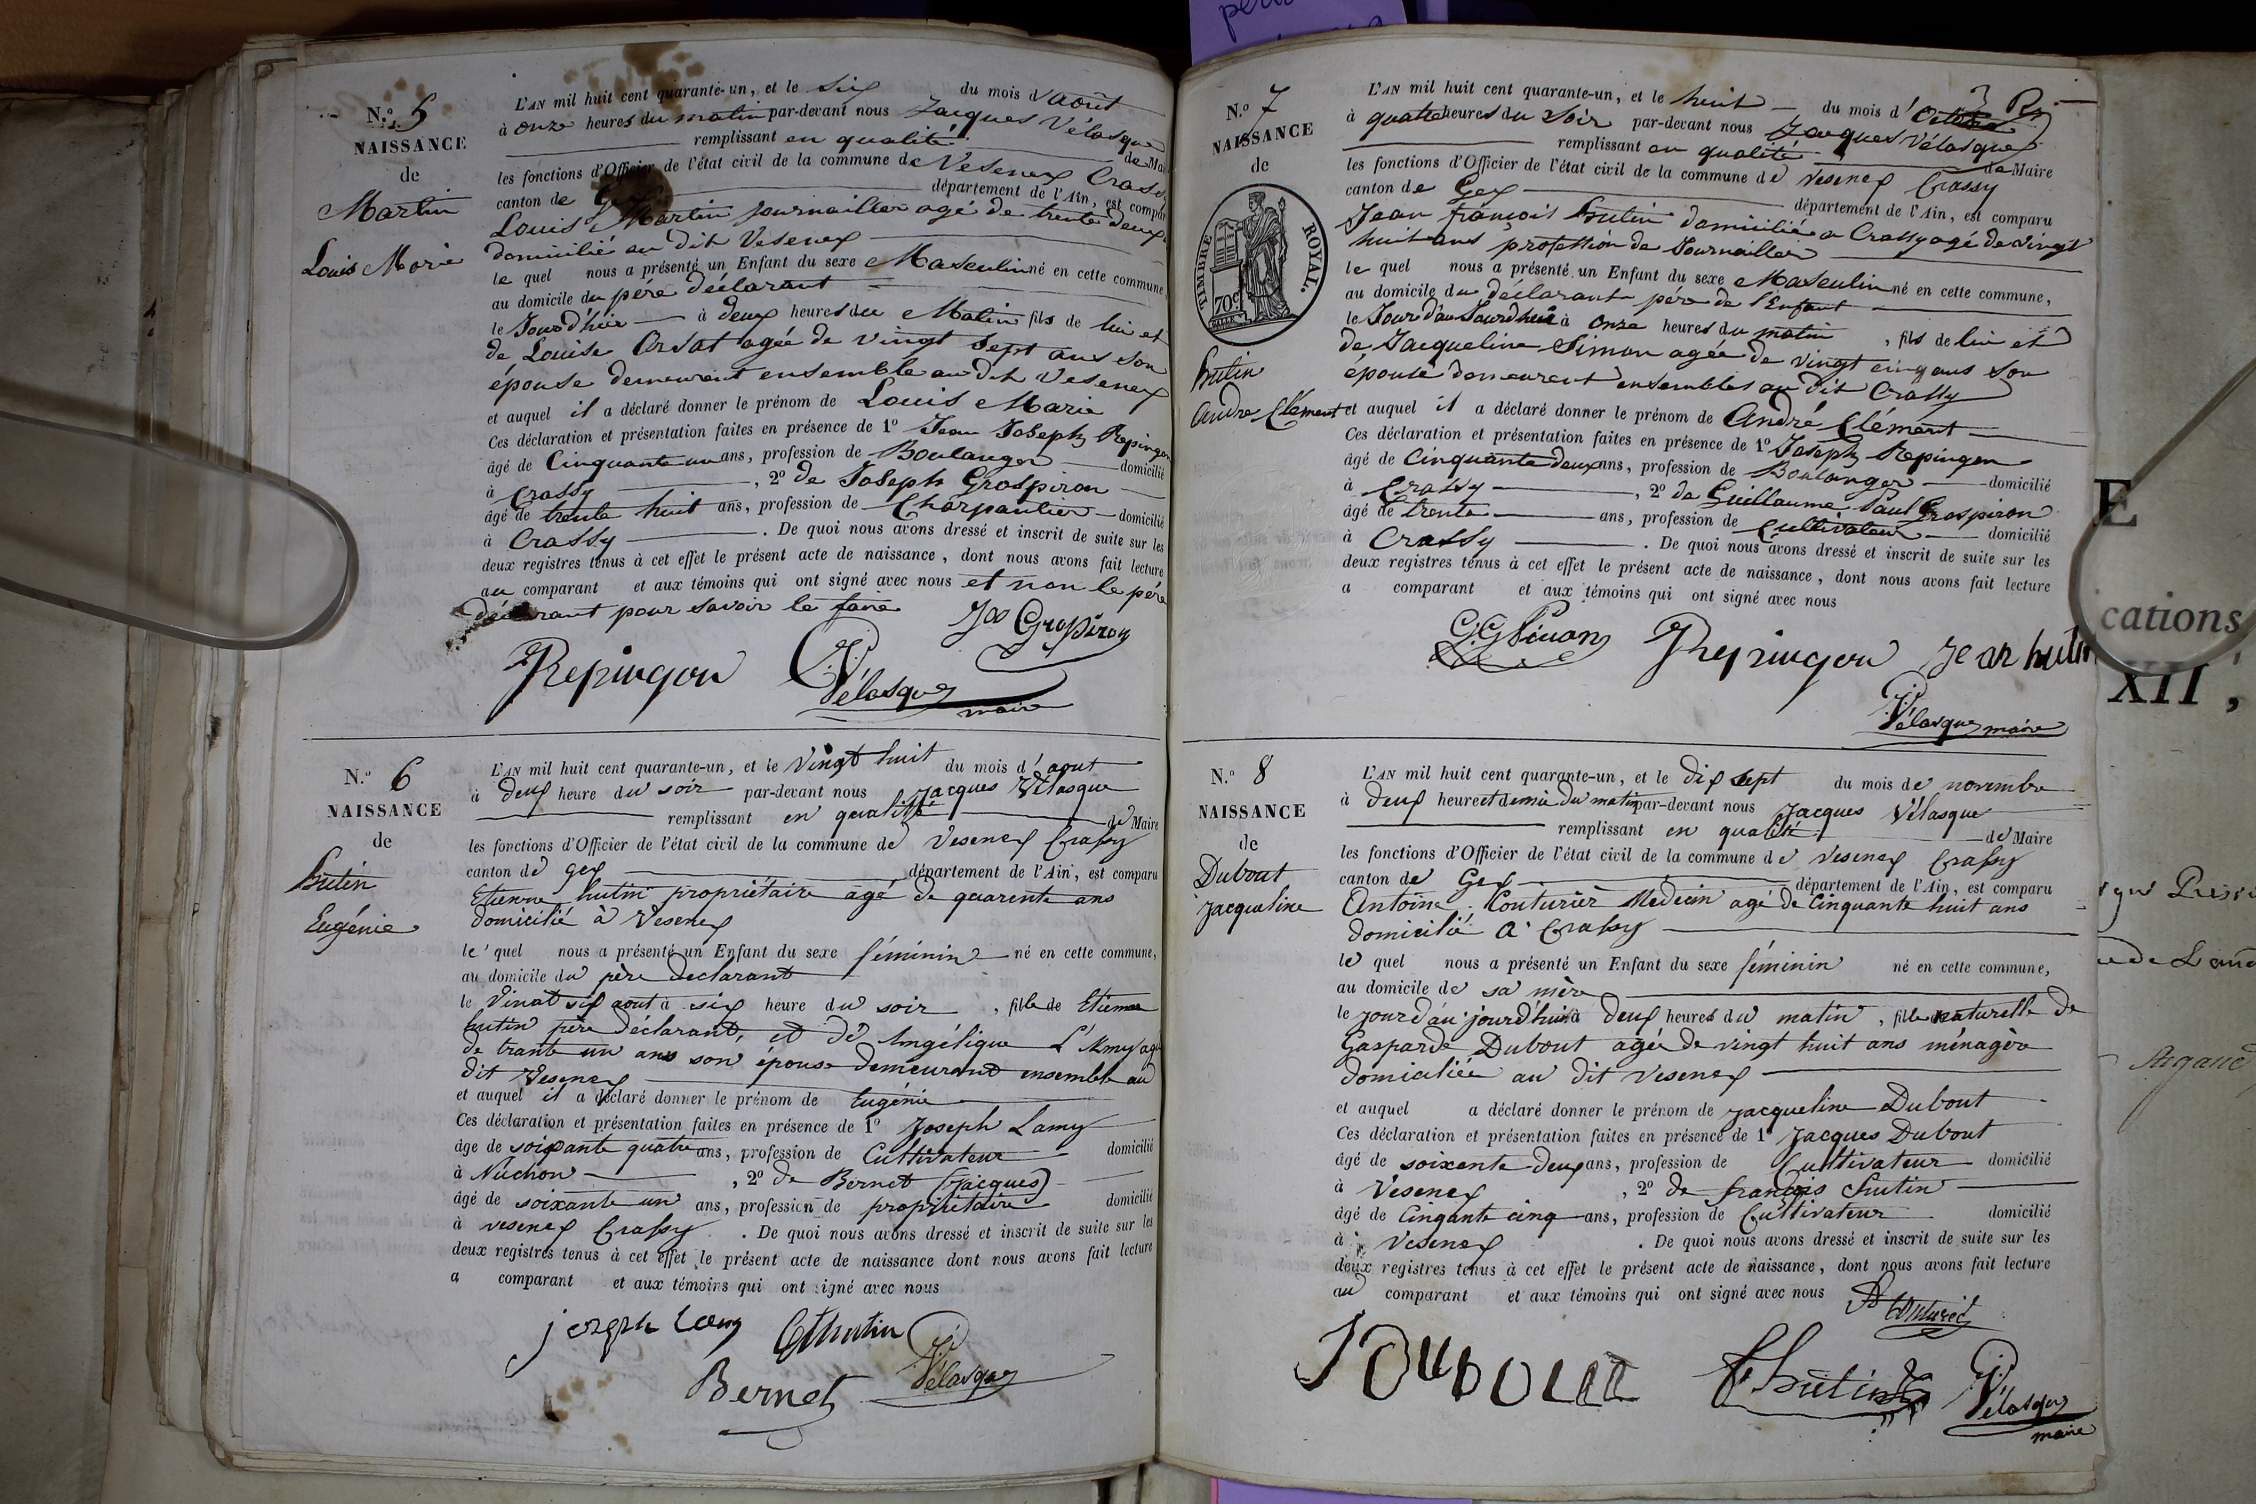 N.º 5
NAISSANCE
de
Martin
Louis Marie
L'AN mil huit cent quarante-un, et le six du mois d'août
à onze heures du matin par-devant nous Jacques Vélasque
remplissant en qualité de Mai
les fonctions d'Officier de l'état civil de la commune de Vesenex Crassy
canton de département de l'Ain, est comparu
Louis Martin journaillier agé de trente deux
domicilié au dit Vesenex
le quel nous a présenté un Enfant du sexe Masculin né en cette commune
au domicile du père déclarant
le Jour d'hier à deux heures du Matin fils de lui et
de Louise Orsat agée de vingt sept ans son
épouse demeurent ensemble au dit Vesenex
et auquel il a déclaré donner le prénom de Louis Marie
Ces déclaration et présentation faites en présence de 1º Jean Joseph Repingon
âgé de Cinquante un ans, profession de Boulanger domicilié
à Crassy, 2º de Joseph Grospiron
âgé de trente huit ans, profession de Charpantier domicilié
à Crassy. De quoi nous avons dressé et inscrit de suite sur les
deux registres tenus à cet effet le présent acte de naissance, dont nous avons fait lecture
au comparant et aux témoins qui ont signé avec nous et non le père
déclarant pour savoir le faire
Jos Grospiron
Repingon J Vélasque maire
N.º 6
NAISSANCE
de
hutin
Eugénie
L'AN mil huit cent quarante-un, et le vingt huit du mois d'aout
à deux heure du soir par-devant nous Jacques Vélasque
remplissant en qualité de Maire
les fonctions d'Officier de l'état civil de la commune de Vesenex Crassy
canton de gex département de l'Ain, est comparu
Etienne hutin propriétaire agé de quarente ans
domicilié à Vesenex
le quel nous a présenté un Enfant du sexe féminin né en cette commune,
au domicile du père declarant
le Vinat six aout à six heure du soir, fille de Etienne
hutin père déclarant, et de Angélique L'Amy agé
de trante un ans son épouse demeurant ensemble au
dit Vesenex
et auquel il a déclaré donner le prénom de Eugénie
Ces déclaration et présentation faites en présence de 1º Joseph Lamy
âge de soixante quatre ans, profession de Cultivateur domicilié
à Nuchon, 2º de Bernet (Jacques)
âgé de soixante un ans, profession de propriétaire domicilié
à vesenex Crassy. De quoi nous avons dressé et inscrit de suite sur les
deux registres tenus à cet effet le présent acte de naissance dont nous avons fait lecture
a comparant et aux témoins qui ont signé avec nous
joseph Lamy Ethutin
Bernet J Vélasque
N.º 7
NAISSANCE
de
TIMBRE ROYAL.
70 c
hutin
andre Clément
L'AN mil huit cent quarante-un, et le huit du mois d'
à quatre heures du soir par-devant nous Jacques Vélasque
remplissant en qualité de Maire
les fonctions d'Officier de l'état civil de la commune de Vesenex Crassy
canton de Gex département de l'Ain, est comparu
Jean françois hutin domicilié a Crassy agé de vingt
huit ans profession de Journaillier
le quel nous a présenté un Enfant du sexe Masculin né en cette commune,
au domicile du déclarant père de l'Enfant
le Jour d'au Jourd'hui à onze heures du matin, fils de lui et
de Jacqueline Simon agée de vingt cinq ans son
épouse demeurent ensembles au dit Crassy
et auquel il a déclaré donner le prénom de André Clément
Ces déclaration et présentation faites en présence de 1º Joseph Repingon
âgé de Cinquante deux ans, profession de Boulanger domicilié
à Crassy, 2º de Guillaume Paul Grospiron
âgé de trente ans, profession de Cultivateur domicilié
à Crassy. De quoi nous avons dressé et inscrit de suite sur les
deux registres tenus à cet effet le présent acte de naissance, dont nous avons fait lecture
a comparant et aux témoins qui ont signé avec nous
Repingon Jean hutin
J Vélasque maire
N.º 8
NAISSANCE
de
Dubout
Jacqueline
L'AN mil huit cent quarante-un, et le dix sept du mois de novembre
à deux heure et demie du matin par-devant nous Jacques Vélasque
remplissant en qualité de Maire
les fonctions d'Officier de l'état civil de la commune de Vesenex Crassy
canton de Gex département de l'Ain, est comparu
Antoine Couturier Medecin agé de Cinquante huit ans
domicilié à Crassy
le quel nous a présenté un Enfant du sexe féminin né en cette commune,
au domicile de sa mère
le jour d'au jourd'hui à deux heures du matin, fille naturelle de
Gasparde Dubout agée de vingt huit ans ménagère
domiciliée au dit vesenex
et auquel a déclaré donner le prénom de Jacqueline Dubout
Ces déclaration et présentation faites en présence de 1º Jacques Dubout
âgé de soixente deux ans, profession de Cultivateur domicilié
à Vesenex, 2º de françois hutin
âgé de Cinqante cinq ans, profession de Cultivateur domicilié
à Vesenex. De quoi nous avons dressé et inscrit de suite sur les
deux registres tenus à cet effet le présent acte de naissance, dont nous avons fait lecture
au comparant et aux témoins qui ont signé avec nous
A Couturier
F hutin J Vélasque
maire
E
cations
XII,